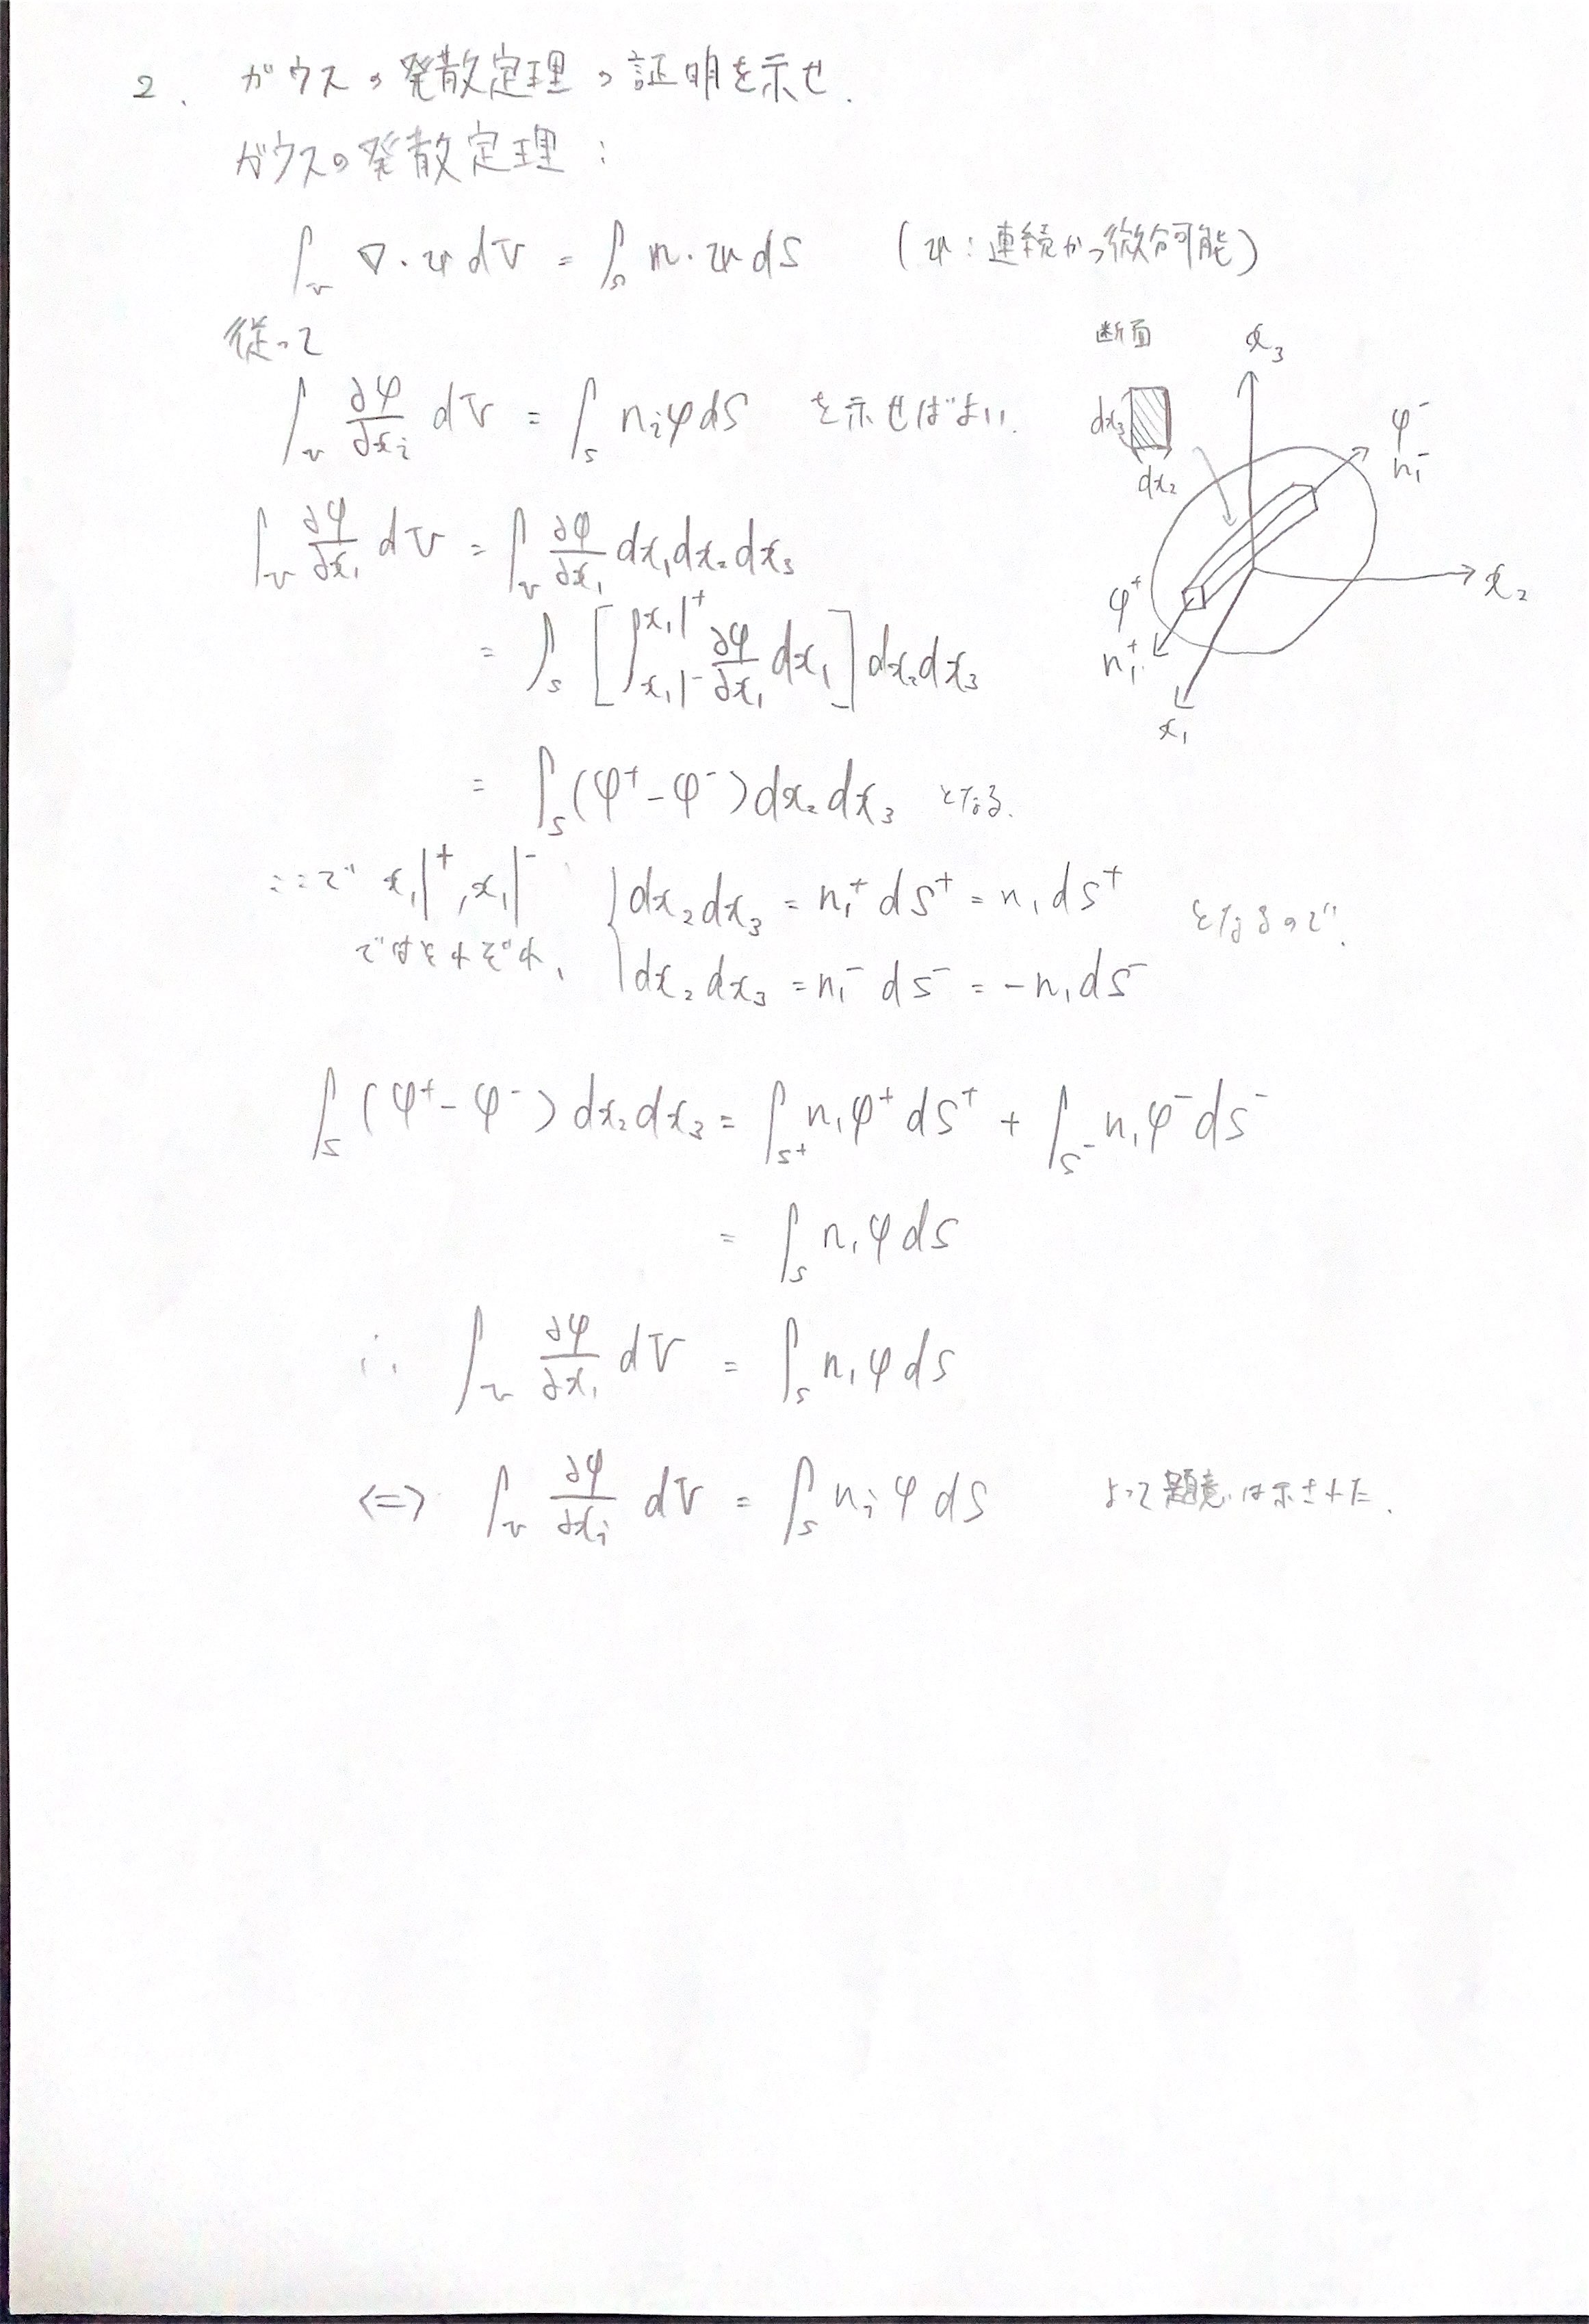 2. ガウスの発散定理の証明を示せ.
ガウスの発散定理:
∫_V ∇・u dV = ∫_S n・u dS (u:連続かつ微分可能)
従って
∫_V ∂φ/∂x_i dV = ∫_S n_i φ dS を示せばよい.
断面
x_3
dx_3
dx_2
φ^-
n_1^-
x_2
φ^+
n_1^+
x_1
∫_V ∂φ/∂x_1 dV = ∫_V ∂φ/∂x_1 dx_1 dx_2 dx_3
= ∫_S [∫_{x_1|^-}^{x_1|^+} ∂φ/∂x_1 dx_1] dx_2 dx_3
= ∫_S (φ^+ - φ^-) dx_2 dx_3 となる.
ここで x_1|^+, x_1|^- { dx_2 dx_3 = n_1^+ dS^+ = n_1 dS^+ となるので.
ではそれぞれ、 dx_2 dx_3 = n_1^- dS^- = -n_1 dS^-
∫_S (φ^+ - φ^-) dx_2 dx_3 = ∫_{S^+} n_1 φ^+ dS^+ + ∫_{S^-} n_1 φ^- dS^-
= ∫_S n_1 φ dS
∴ ∫_V ∂φ/∂x_1 dV = ∫_S n_1 φ dS
⇔ ∫_V ∂φ/∂x_i dV = ∫_S n_i φ dS よって題意は示された.